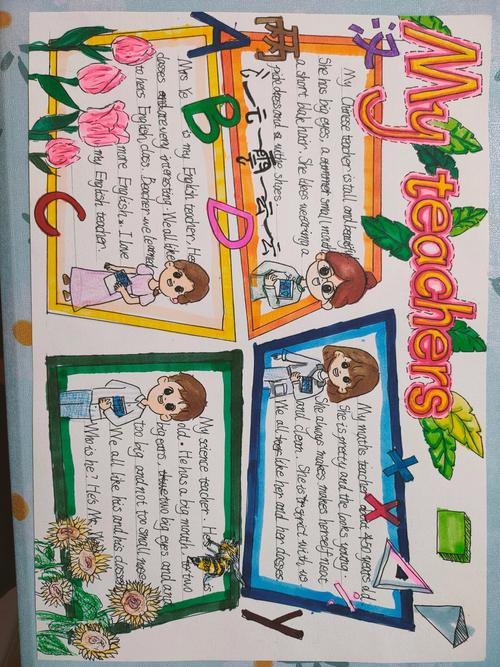 My teachers
汉
My Chinese teacher is tall and beautiful
She has big eyes, a small mouth
a short blak hair. She likes wearing a
pink dress and a white shoes.
My maths teacher about 40 years old
She is pretty and the looks young.
She always makes herself neat
and clean. She is strict with us
We all like her and her classes
A
B
C
D
Mrs Ye is my English teacher. Her
classes are very interesting. We all like
to have English class. Beacher we learned
more English. I love
my English teacher.
x
x
÷
y
My science teacher. He is
old. He has a big mouth. two
big ears, two big eyes and a
too big and not too small nose
We all like his and his classes
Who is he? He's Mr.